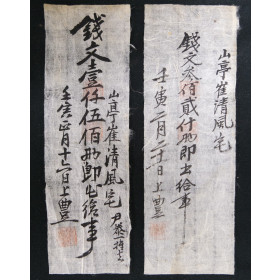 山亭崔清風宅
錢文叁佰貳什兩即出給事
壬寅二月二十一日上豊
山亭崔清風宅 尹泰一持去
錢文壹仟伍佰兩即出給事
壬寅正月十六日上豊